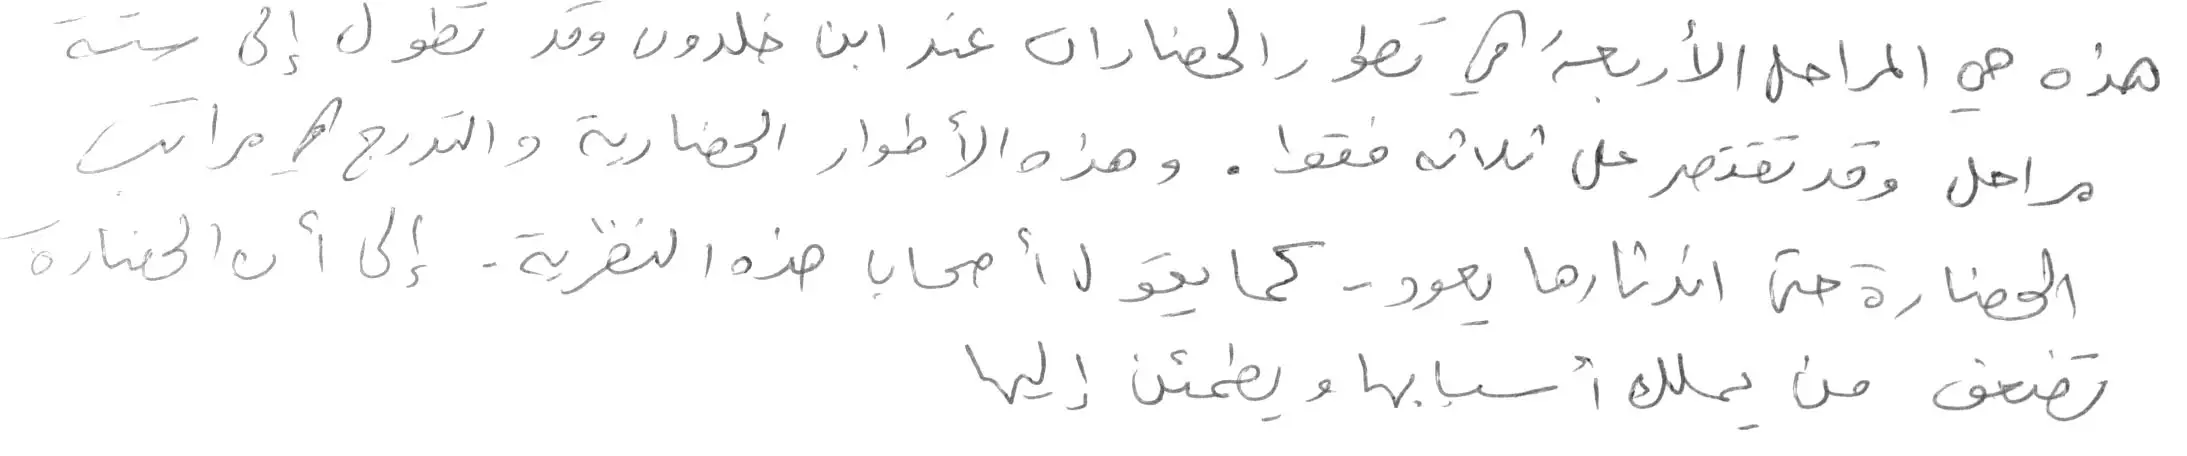 هذه هي المراحل الأربعة في تطور الحضارات عند ابن خلدون وقد تطول إلى ستة
مراحل وقد تقتصر على ثلاثه فقط . وهذه الأطوار الحضارية والتدرج في مراتب
الحضارة حتى اندثارها يعود - كما يقول أصحاب هذه النظرية - إلى أن الحضارة
تضعف من يملك أسبابها ويطمئن إليها